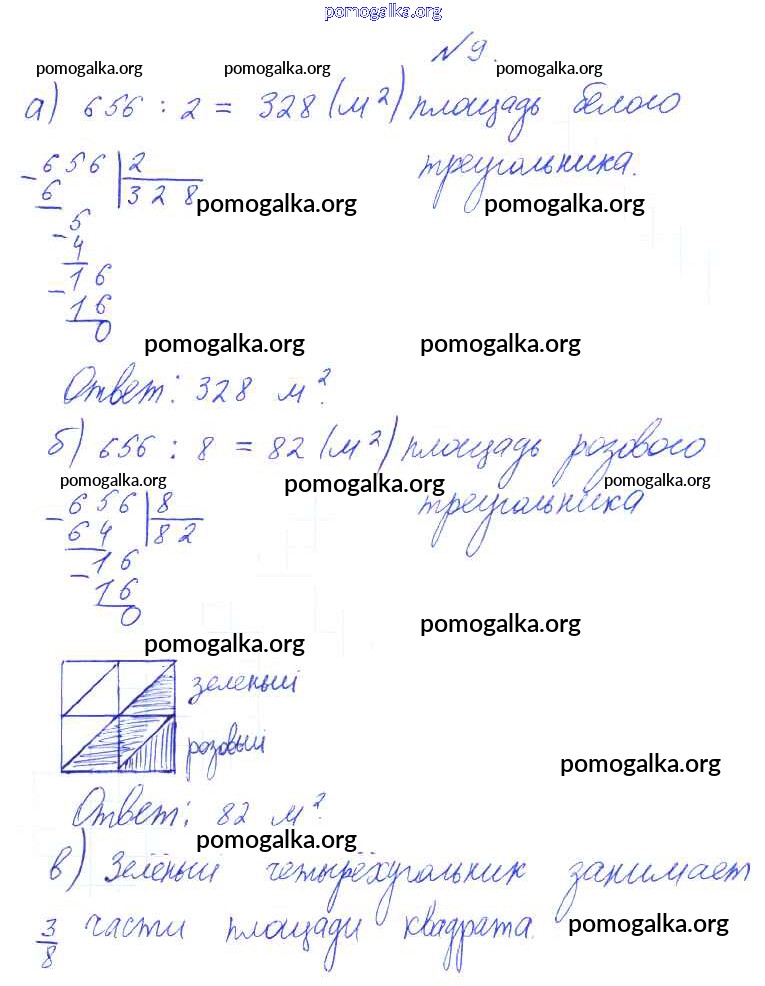 pomogalka.org
№ 9.
pomogalka.org pomogalka.org pomogalka.org
а) 656 : 2 = 328 (м²) площадь белого
треугольника.
- 656 | 2
6 328
pomogalka.org pomogalka.org
- 5
4
- 16
16
0
pomogalka.org pomogalka.org
Ответ: 328 м².
б) 656 : 8 = 82 (м²) площадь розового
pomogalka.org pomogalka.org pomogalka.org
треугольника
- 656 | 8
64 82
- 16
16
0
pomogalka.org pomogalka.org
зеленый
розовый
pomogalka.org
Ответ: 82 м².
pomogalka.org
в) Зелёный четырёхугольник занимает
3/8 части площади квадрата.
pomogalka.org